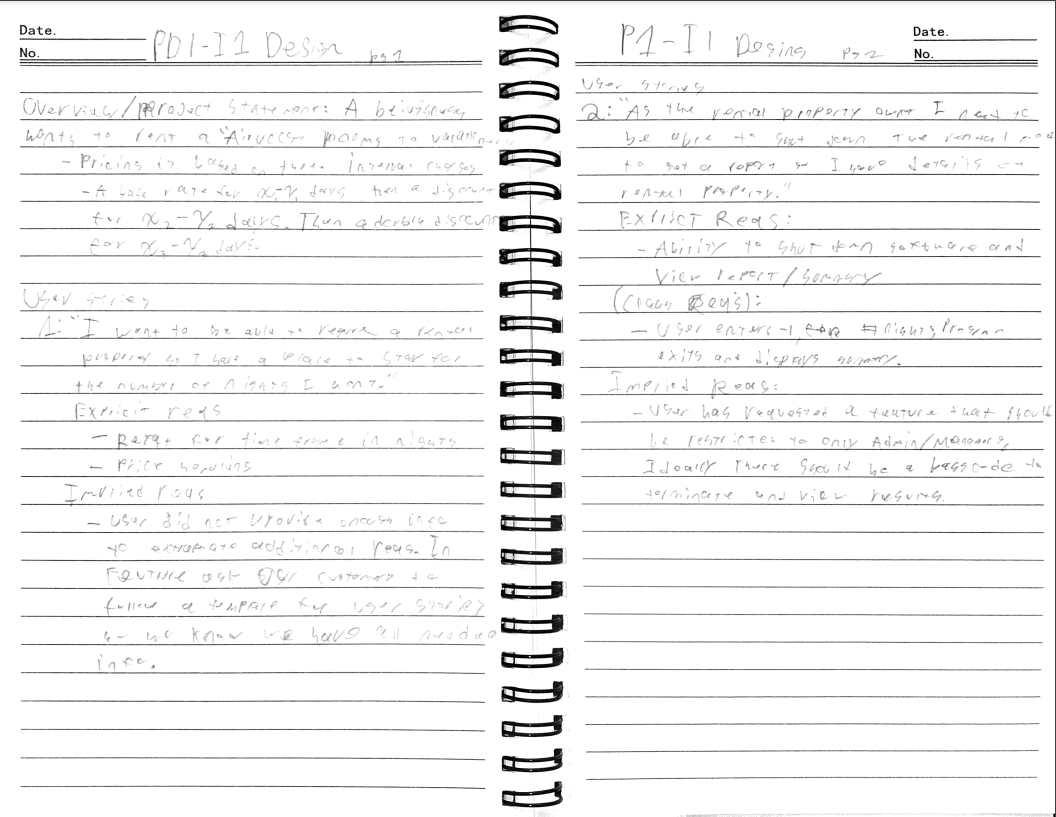 Date.
No.
PD1-I1 Design pg 1
Overview/Project Statement: A
wants to rent a to
- Pricing is based on three Internal
- A base rate for x₁-y₁ days then a discount
for x₂-y₂ days. Then a double discount
for x₃-y₃ days.
User stories
1: "I want to be able to a rental
property so I have a place to stay for
the number of nights I want."
Explicit reqs
- for time frame in nights
- Price
Implied reqs
- User did not provide enough info
to additional reqs. In
ask customers to
follow a template for user stories
so we know we have all
info.
Date.
No.
P1-I1 Desing pg 2
User stories
2: "As the rental property I need to
be able to shut down the rental
to get a report so I have details on
rental property."
Explicit Reqs:
- Ability to shut down software and
View report/summary
(Class Reqs):
- User enters -1 # nights, Program
exits and displays summary.
Implied Reqs:
- User has requested a feature that should
be restricted to only Admin/Managers,
Ideally there should be a to
terminate and view results.